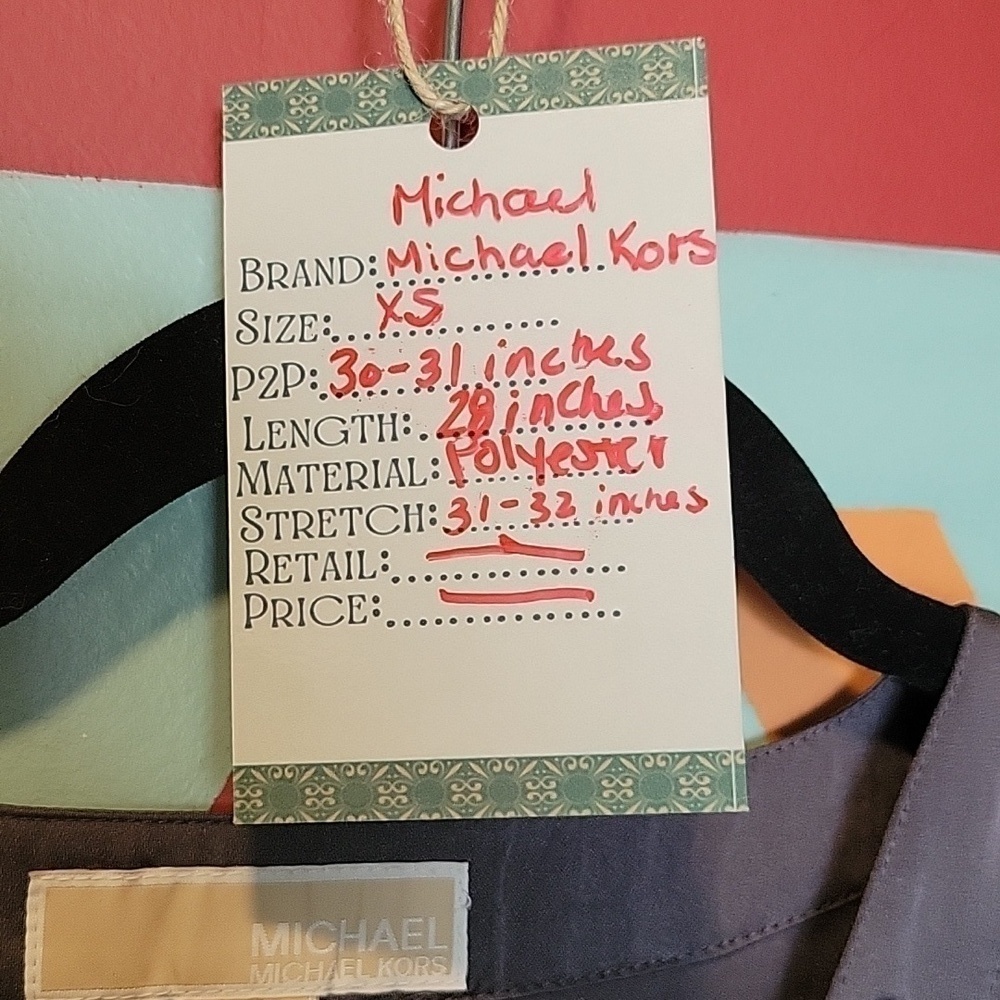 Michael
BRAND: Michael Kors
SIZE: XS
P2P: 30-31 inches
LENGTH: 28 inches
MATERIAL: Polyester
STRETCH: 31-32 inches
RETAIL:
PRICE:
MICHAEL
MICHAEL KORS